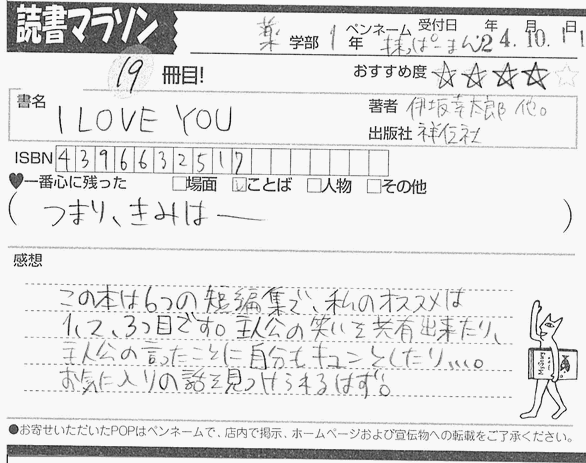 読書マラソン
薬 学部 1 年 ペンネーム 抹っぱーまん 受付日 24年10月11日
19 冊目! おすすめ度 ★★★★☆
書名 I LOVE YOU
著者 伊坂幸太郎 他。
出版社 祥伝社
ISBN 4396632517
♥一番心に残った □場面 ☑ことば □人物 □その他
( つまり、きみは― )
感想
この本は6つの短編集で、私のオススメは
1、2、3つ目です。主人公の笑いを共有出来たり、
主人公の言ったことに自分もキュンとしたり...。
お気に入りの話を見つけられるはず。
●お寄せいただいたPOPはペンネームで、店内で掲示、ホームページおよび宣伝物への転載をご了承ください。